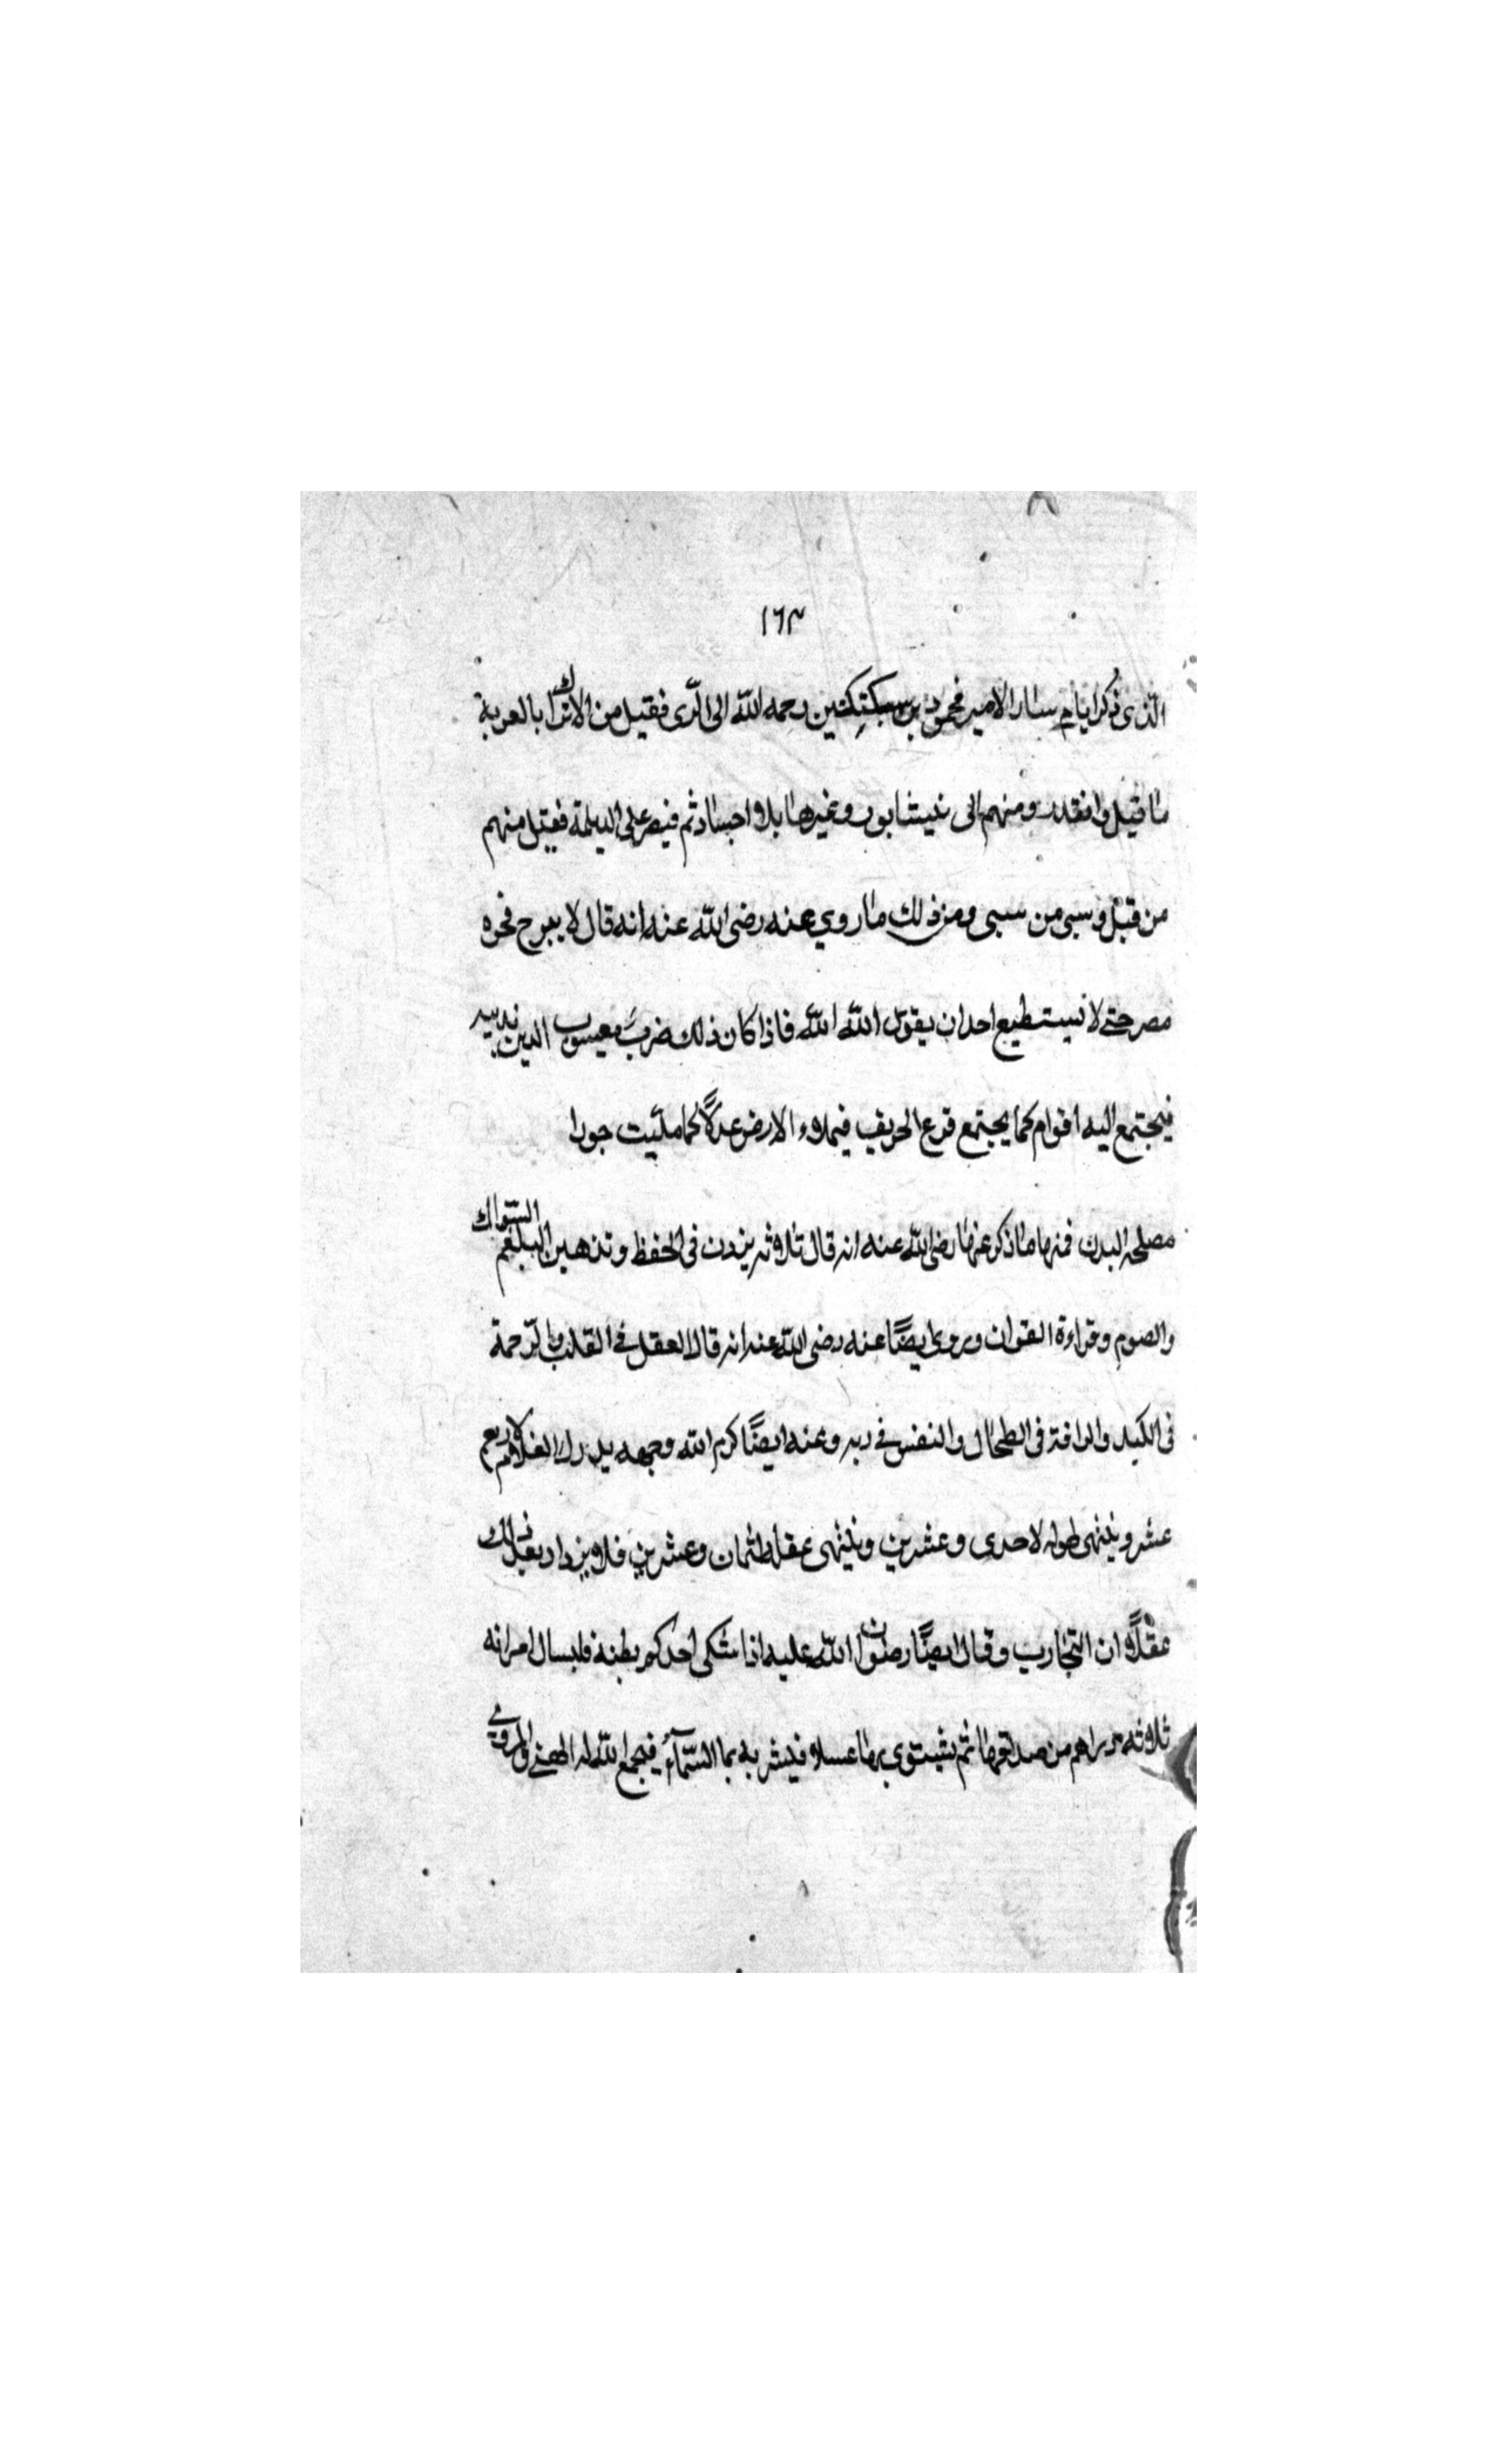 ١٦٣
الذى ذكر ايام سار الامير محمود بن سبكتكين رحمه الله الى الرّى فقيل من الاتراك بالعربة
ما قيل وانقلد ومنهم الى نيشابور وغيرها بلا احساد ثم فنصر على الديلمة فقتل منهم
من قتل وسبى من سبى ومن ذلك ما روي عنه رضى الله عنه انه قال لا يبرح نحوه
مصر حتى لا نسيتطيع احد ان يقول الله الله فاذا كان ذلك ضرب يعسوب الدين بذنبه
فيجتمع اليه اقوام كما يجتمع قزع الخريف فيملاء الارض عدلاً كما ملئت جورا
مصلحه البدن فمنها ما ذكر عنها رضى الله عنه انه قال ثلاثه يزدن فى الحفظ وتذهبن البلغم السّواك
والصوم وقراءة القران وروى ايضًا عنه رضى الله عنه انه قال العقل فى القلب والرّحمة
فى الكبد والرافة فى الطحال والنفس فى ريه وعنه ايضًا كرم الله وجهه يدرك الغلام لاربع
عشر وينتهى طوله لاحدى وعشرين وينتهى عقله لثمان وعشرين فلا يزداد بعد ذلك
عقلاً الا ان التجارب وقال ايضًا رضوان الله عليه اذا شكى احدكم بطنه فليسال امراته
ثلاثه دراهم من صداقها ثم يشتوي بها عسلا فيشربه بما السّمآء فيجمع الله له الهنئ والمروئ